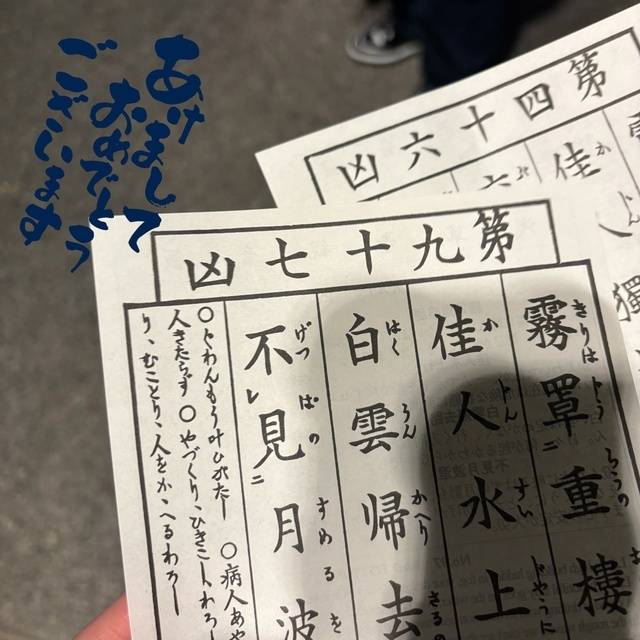 あけまして
おめでとう
ございます
第四十六凶
佳
獨
第九十七凶
霧罩重樓
佳人水上
白雲帰去
不見月波
○ぐわんもう叶ひがたし ○病人あや
人きたらず ○やづくり、ひきこしわろし
り、むことり、人をかゝへるわろし